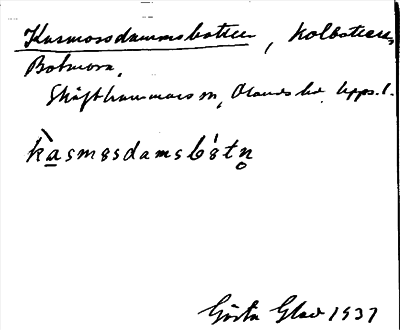 Kasmossdammsbotten, Kolbotten,
Botmora.
Skäfthammars sn, Olands hd, Upps. l.
kàsmosdamsbótn̥
Gösta Glad 1937